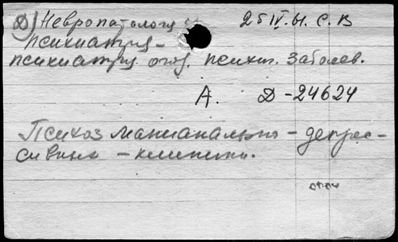 Д) Невропатология и 25 IV.61. С.В
психиатрия -
психиатрия отд. психич. заболев.
А. Д-24624
Психоз маниакально - депрес-
сивный - клиника.